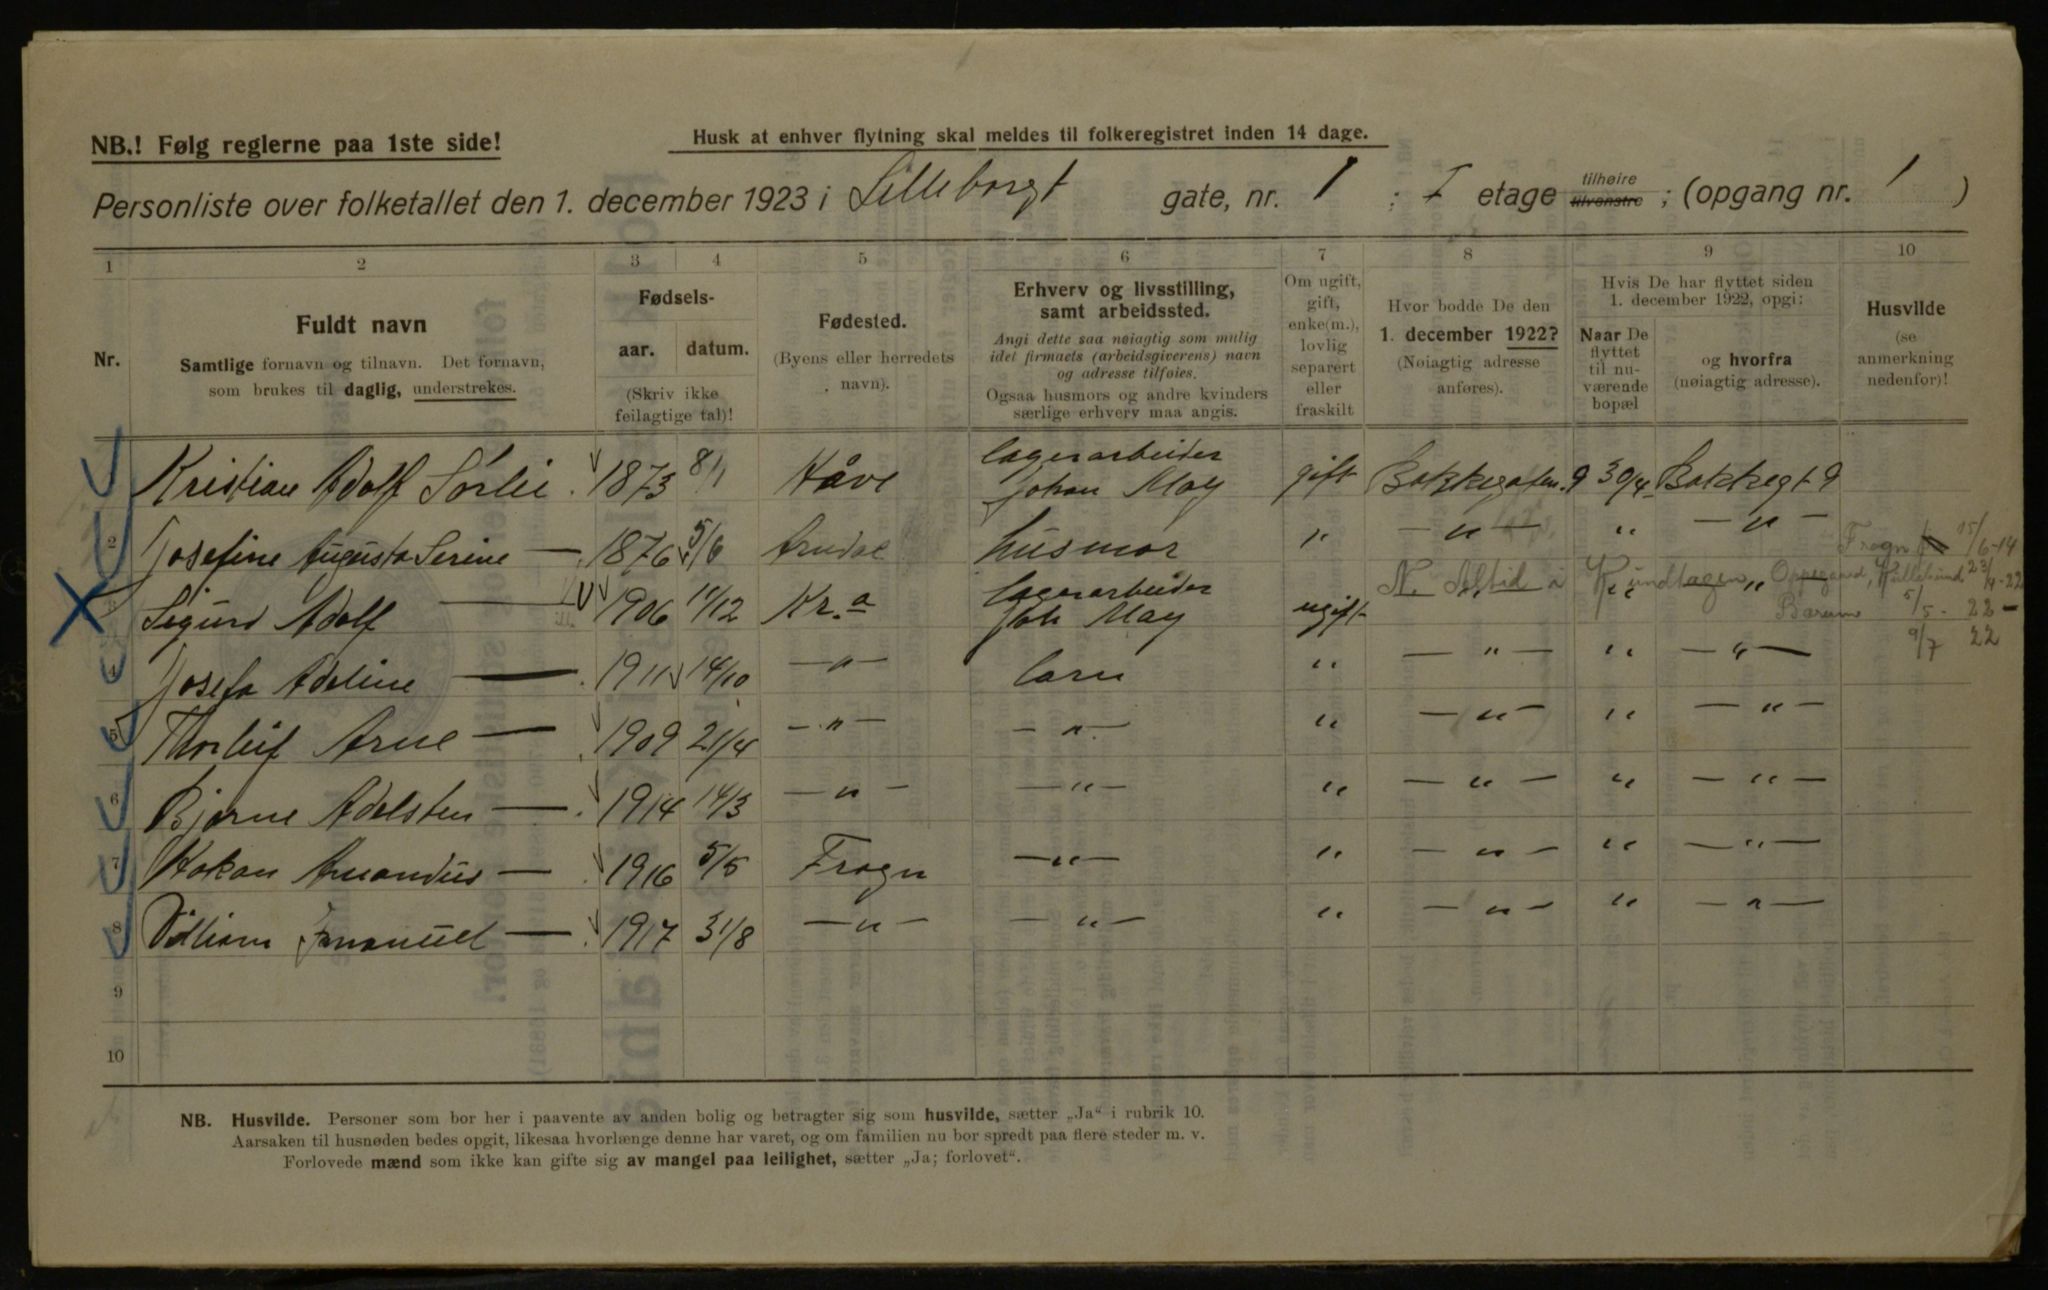 NB.! Følg reglerne paa 1ste side!
Husk at enhver flytning skal meldes til folkeregistret inden 14 dage.
Personliste over folketallet den 1. december 1923 i Lilleborgt gate, nr. 1 ; I etage tilhøire tilvenstre ; (opgang nr. 1 )
1 2 3 4 5 6 7 8 9 10
Nr.
Fuldt navn
Samtlige fornavn og tilnavn. Det fornavn,
som brukes til daglig, understrekes.
Fødsels-
aar. datum.
(Skriv ikke
feilagtige tal)!
Fødested.
(Byens eller herredets
navn).
Erhverv og livsstilling,
samt arbeidssted.
Angi dette saa nøiagtig som mulig
idet firmaets (arbeidsgiverens) navn
og adresse tilføies.
Ogsaa husmors og andre kvinders
særlige erhverv maa angis.
Om ugift,
gift,
enke(m.),
lovlig
separert
eller
fraskilt
Hvor bodde De den
1. december 1922?
(Nøiagtig adresse
anføres).
Hvis De har flyttet siden
1. december 1922, opgi:
Naar De
flyttet
til nu-
værende
bopæl
og hvorfra
(nøiagtig adresse).
Husvilde
(se
anmerkning
nedenfor)!
Kristian Adolf Sørlie 1873 8/1 Håve Lagerarbeider Johan May gift Bakkegaten 9 30/4 Bakkegt 9
2 Josefine Augusta Serine — 1876 5/6 Arndal husmor " — " — " — " —
Frogn 15/6-14
3 Sigurd Adolf — 1906 11/12 Kr.a Lagerarbeider Joh May ugift " " "
N. i Oppegaard, 23/4-22
Bærum 5/5 - 22 -
9/7 22
4 Josefa Adeline — 1911 14/10 — " — barn " — " — " — " —
5 Thorleif Arne — 1909 21/4 — " — — " — " — " — " — " —
6 Bjarne Adelsten — 1914 14/3 — " — — " — " — " — " — " —
7 Hakon Amandus — 1916 5/5 Frogn — " — " — " — " — " —
8 Villiam Emanuel — 1917 31/8 — " — — " — " — " — " — " —
9
10
NB. Husvilde. Personer som bor her i paavente av anden bolig og betragter sig som husvilde, sætter „Ja“ i rubrik 10.
Aarsaken til husnøden bedes opgit, likesaa hvorlænge denne har varet, og om familien nu bor spredt paa flere steder m. v.
Forlovede mænd som ikke kan gifte sig av mangel paa leilighet, sætter „Ja; forlovet“.